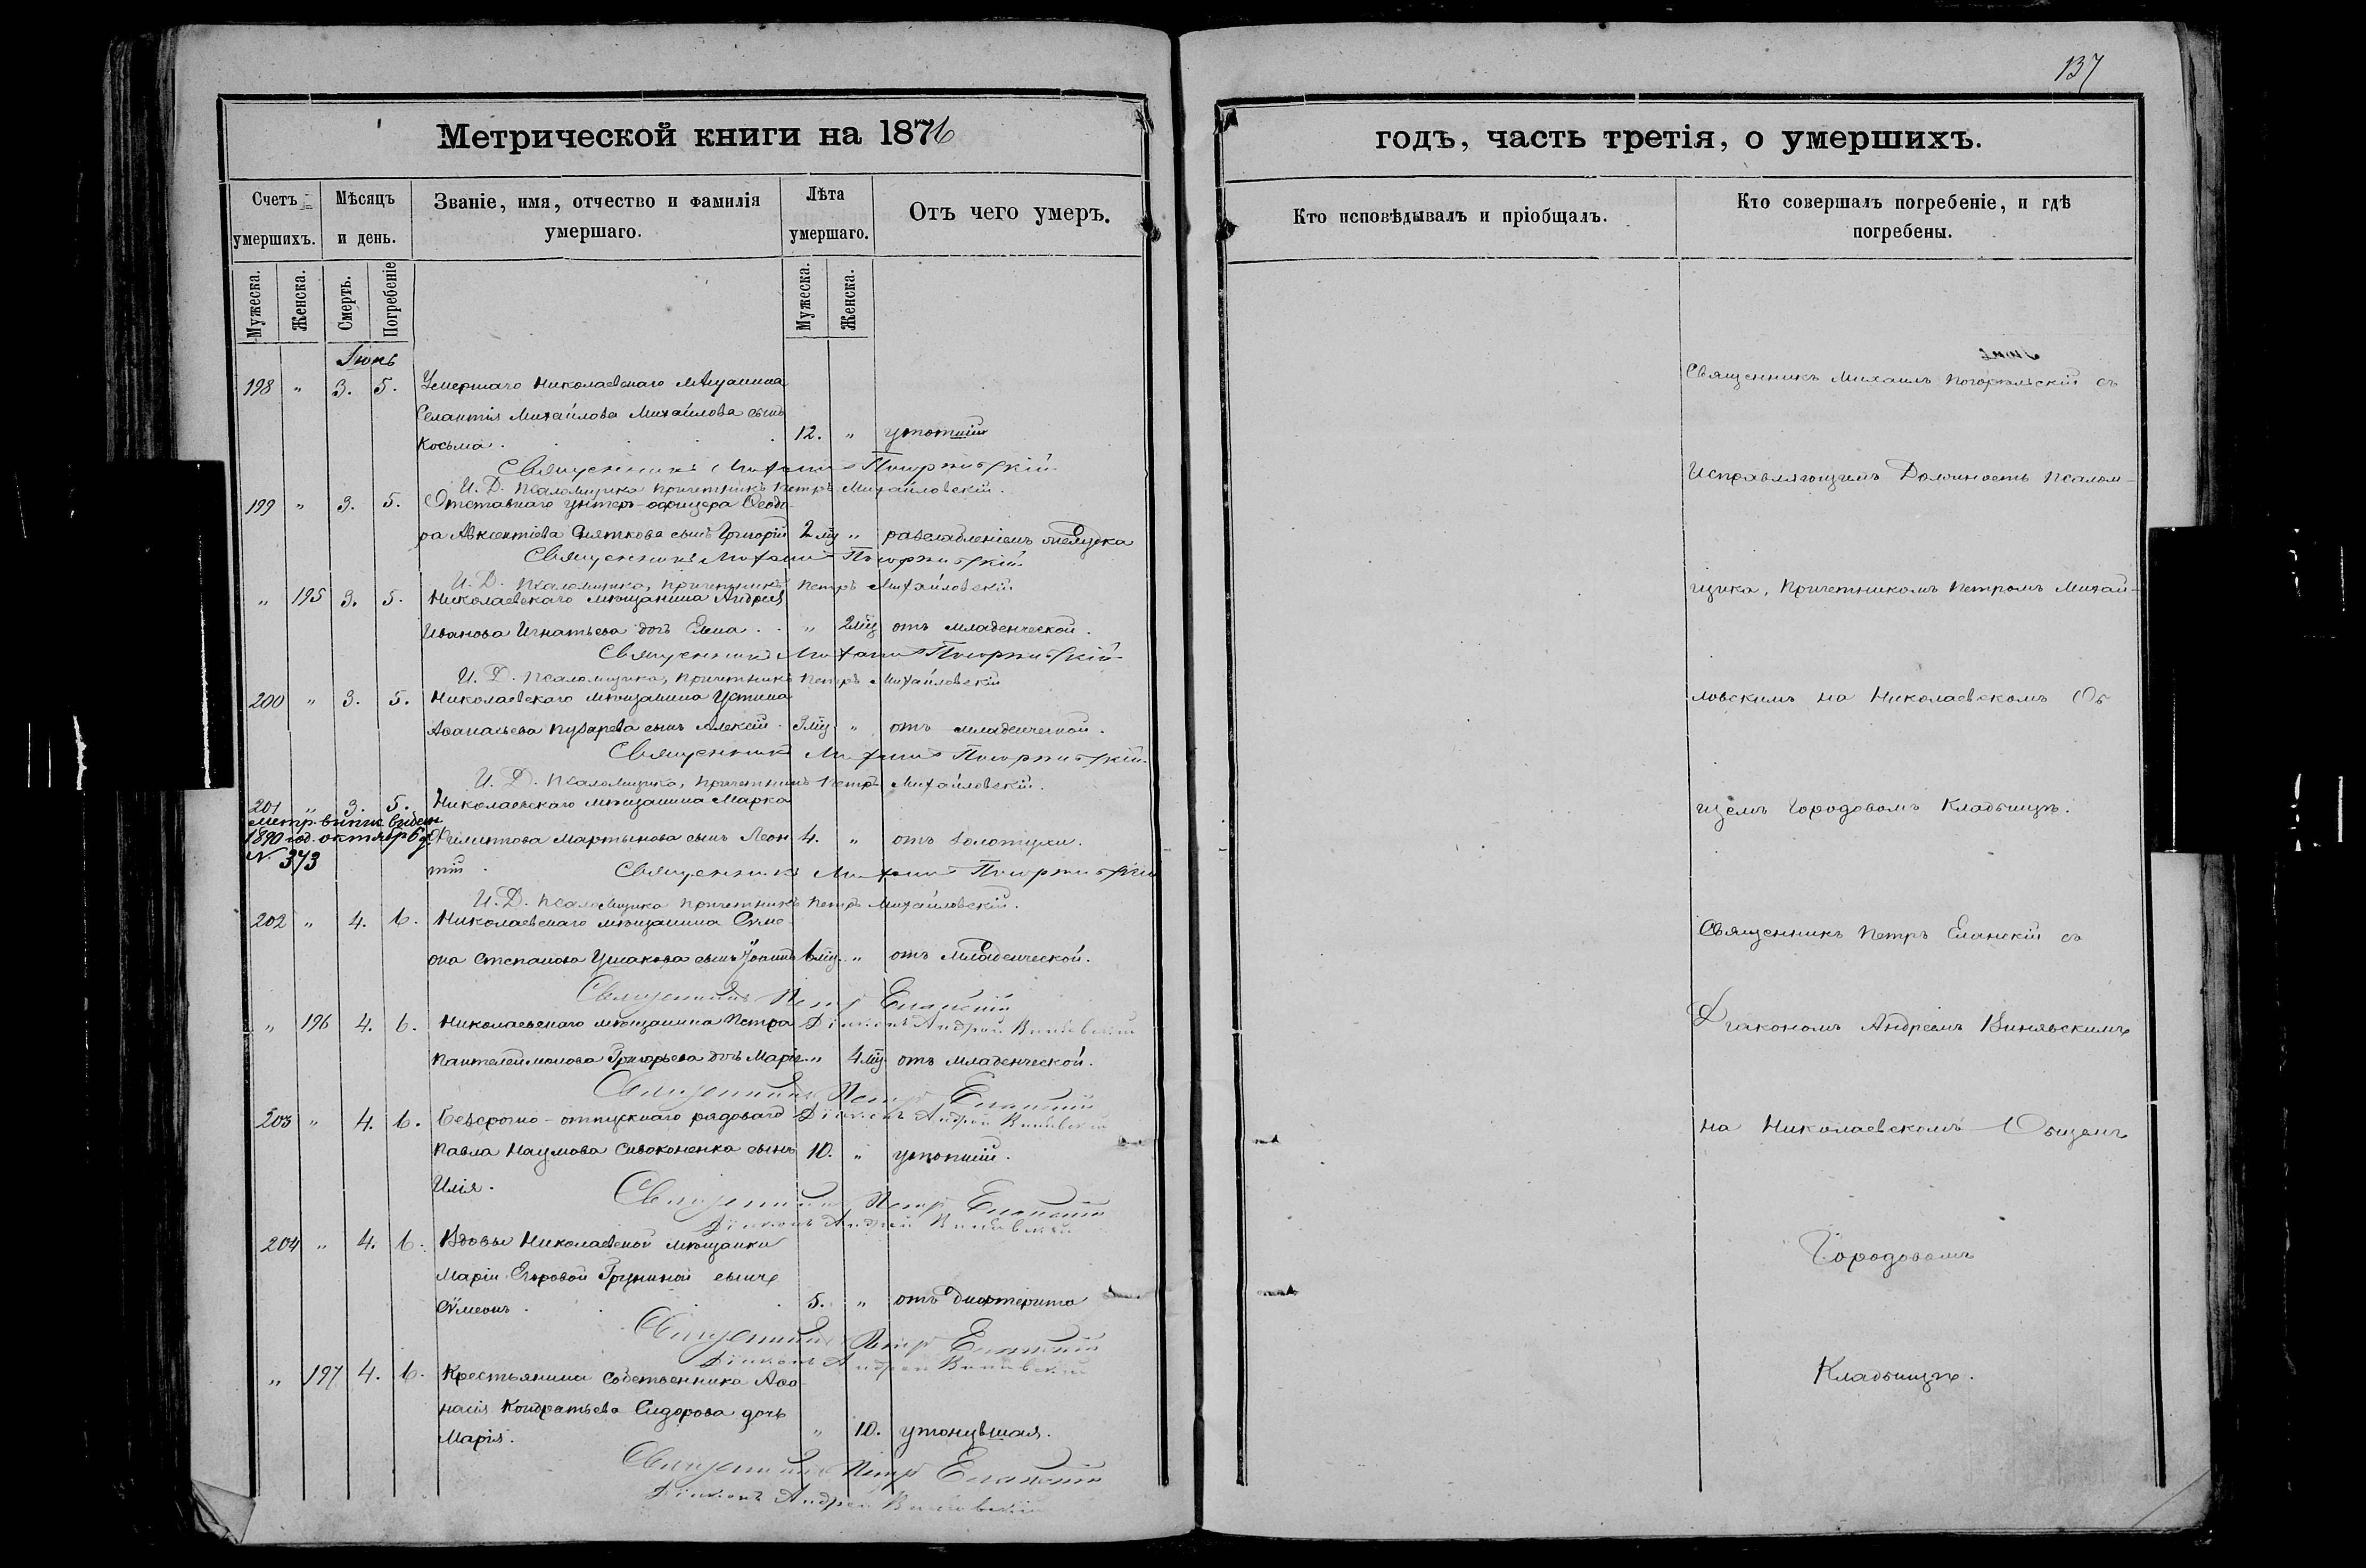 137
Метрической книги на 1876
годъ, часть третія, о умершихъ.
Счетъ умершихъ.
Мѣсяцъ и день.
Званіе, имя, отчество и фамилія умершаго.
Лѣта умершаго.
Отъ чего умеръ.
Кто исповѣдывалъ и пріобщалъ.
Кто совершалъ погребеніе, и гдѣ погребены.
Мужеска.
Женска.
Смерть.
Погребеніе
Мужеска.
Женска.
Іюнь
198 " 3. 5. Умершаго Николаевскаго мѣщанина
Михайлова Михайлова сынъ
Косьма. 12. " утопшій
Священникъ Михаилъ
И. Д. Псаломщика Причетникъ Петръ Михайловскій.
199 " 3. 5. Отставнаго унтеръ-офицера Ѳеодо-
ра Авксентіева сынъ Григорій 2 мц " разслабленіемъ
Священникъ Михаилъ
И. Д. Псаломщика, Причетникъ Петръ Михайловскій
" 195 3. 5. Николаевскаго мѣщанина Андрея
Иванова Игнатьева дочь Елена. " 2 мц отъ младенческой.
Священникъ Михаилъ
И. Д. Псаломщика, Причетникъ Петръ Михайловскій
200 " 3. 5. Николаевскаго мѣщанина Устина
Аѳанасьева сынъ Алексій. 3 мц " отъ младенческой.
Священникъ Михаилъ
И. Д. Псаломщика, Причетникъ Петръ Михайловскій.
201 " 3. 5. Николаевскаго мѣщанина Марка
Метр. выпис. выден
1890 год. октябр 6 д.
N. 373
Филиппова Мартынова сынъ Леон- 4. " отъ золотухи.
тій. Священникъ Михаилъ
И. Д. Псаломщика Причетникъ Петръ Михайловскій.
202 " 4. 6. Николаевскаго мѣщанина Сѵме-
она Степанова Ушакова сынъ Іоаннъ 6 мц. " отъ младенческой.
Священникъ Петръ Еланскій
" 196 4. 6. Николаевскаго мѣщанина Петра
Діаконъ Андрей
Пантелеймонова Григорьева дочь Марія. " 4 мц. отъ младенческой.
Священникъ Петръ Еланскій
203 " 4. 6. Безсрочно-отпускнаго рядоваго
Діаконъ Андрей
Павла Наумова Сивоконенка сынъ 10. " утопшій.
Илія. Священникъ Петръ Еланскій
Діаконъ Андрей
204 " 4. 6. Вдовы Николаевской мѣщанки
Маріи Егоровой Груниной сынъ
Сѵмеонъ. 5. " отъ дифтерита
Священникъ Петръ Еланскій
Діаконъ Андрей
" 197 4. 6. Крестьянина собственника Аѳа-
насія Кондратьева Сидорова дочь
Марія. " 10. утонувшая.
Священникъ Петръ Еланскій
Діаконъ Андрей
Священникъ Михаилъ съ
Исправляющимъ Должность Псалом-
щика, Причетникомъ Петромъ Михай-
ловскимъ на Николаевскомъ Об
щемъ Городовомъ Кладбищѣ.
Священникъ Петръ Еланскій съ
Діакономъ Андреемъ
на Николаевскомъ Общемъ
Городовомъ
Кладбищѣ.